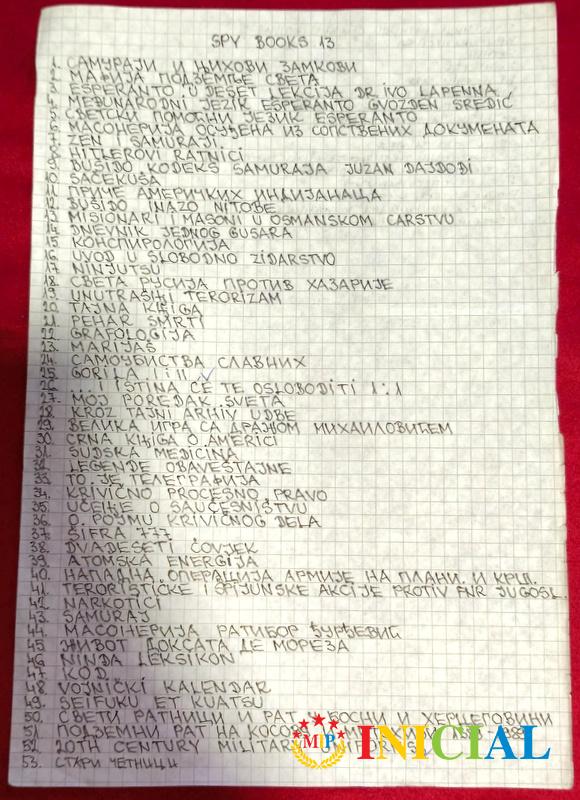 SPY BOOKS 13
1. САМУРАЈИ И ЊИХОВИ ЗАМКОВИ
2. МАФИЈА ПОДЗЕМЉЕ СВЕТА
3. ESPERANTO U DESET LEKCIJA DR IVO LAPENNA
4. MEĐUNARODNI JEZIK ESPERANTO GVOZDEN SREDIĆ
5. СВЕТСКИ ПОМОЋНИ ЈЕЗИК ESPERANTO
6. МАСОНЕРИЈА ОСУЂЕНА ИЗ СОПСТВЕНИХ ДОКУМЕНАТА
7. ZEN I SAMURAJI
8. HITLEROVI RATNICI
9. BUŠIDO KODEKS SAMURAJA JUZAN DAJDODI
10. SAČEKUŠA
11. ПРИЧЕ АМЕРИЧКИХ ИНДИЈАНАЦА
12. BUŠIDO INAZO NITOBE
13. MISIONARI I MASONI U OSMANSKOM CARSTVU
14. DNEVNIK JEDNOG GUSARA
15. КОНСПИРОЛОГИЈА
16. UVOD U SLOBODNO ZIDARSTVO
17. NINJUTSU
18. СВЕТА РУСИЈА ПРОТИВ ХАЗАРИЈЕ
19. UNUTRAŠNJI TERORIZAM
20. ТАЈНА КЊИГА
21. PEHAR SMRTI
22. GRAFOLOGIJA
23. MARIJAŠ
24. САМОУБИСТВА СЛАВНИХ
25. GORILA I i II
26. ... I ISTINA ĆE TE OSLOBODITI 1:1
27. MOJ POREDAK SVETA
28. KROZ TAJNI ARHIV UDBE
29. ВЕЛИКА ИГРА СА ДРАЖОМ МИХАИЛОВИЋЕМ
30. CRNA KЊIGA O AMERICI
31. SUDSKA MEDICINA
32. LEGENDE OBAVEŠTAJNE
33. ТО ЈЕ ТЕЛЕГРАФИЈА
34. KRIVIČNO PROCESNO PRAVO
35. UČEЊE O SAUČESNIŠTVU
36. O POJMU KRIVIČNOG DELA
37. ŠIFRA 777
38. DVADESETI ČOVJEK
39. ATOMSKA ENERGIJA
40. НАПАДНА ОПЕРАЦИЈА АРМИЈЕ НА ПЛАНИ. И КРШ.
41. TERORISTIČKE I ŠPIJUNSKE AKCIJE PROTIV FNR JUGOSL.
42. NARKOTICI
43. SAMURAJ
44. МАСОНЕРИЈА РАТИБОР ЂУРЂЕВИЋ
45. ЖИВОТ ДОКСАТА ДЕ МОРЕЗА
46. NINDA LEKSIKON
47. KOD
48. VOJNIČKI KALENDAR
49. SEIFUKU ET KUATSU
50. СВЕТИ РАТНИЦИ И РАТ У БОСНИ И ХЕРЦЕГОВИНИ
51. ПОДЗЕМНИ РАТ НА КОСОВУ
52. 20TH CENTURY MILITARY UNIFORMS
53. СТАРИ ЧЕТНИЦИ
MP INICIAL